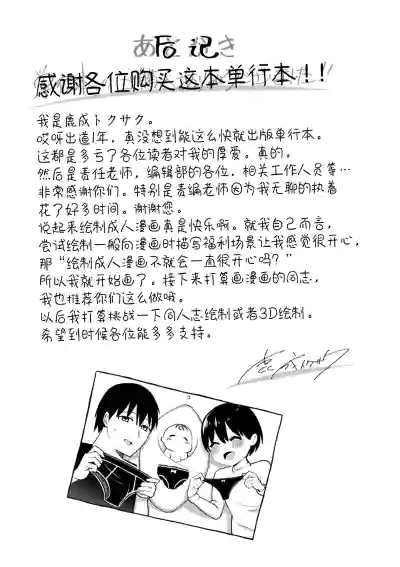 后记
感谢各位购买这本单行本!!
我是鹿成トクサク。
哎呀出道1年,真没想到能这么快就出版单行本。
这都是多亏了各位读者对我的厚爱。真的。
然后是责任老师,编辑部的各位,相关工作人员等…
非常感谢你们。特别是责编老师因为我无聊的执着
花了好多时间。谢谢您。
说起来绘制成人漫画真是快乐啊。就我自己而言,
尝试绘制一般向漫画时描写福利场景让我感觉很开心,
那“绘制成人漫画不就会一直很开心吗?”
所以我就开始画了。接下来打算画漫画的同志,
我也推荐你们这么做哦。
以后我打算挑战一下同人志绘制或者3D绘制。
希望到时候各位能多多支持。